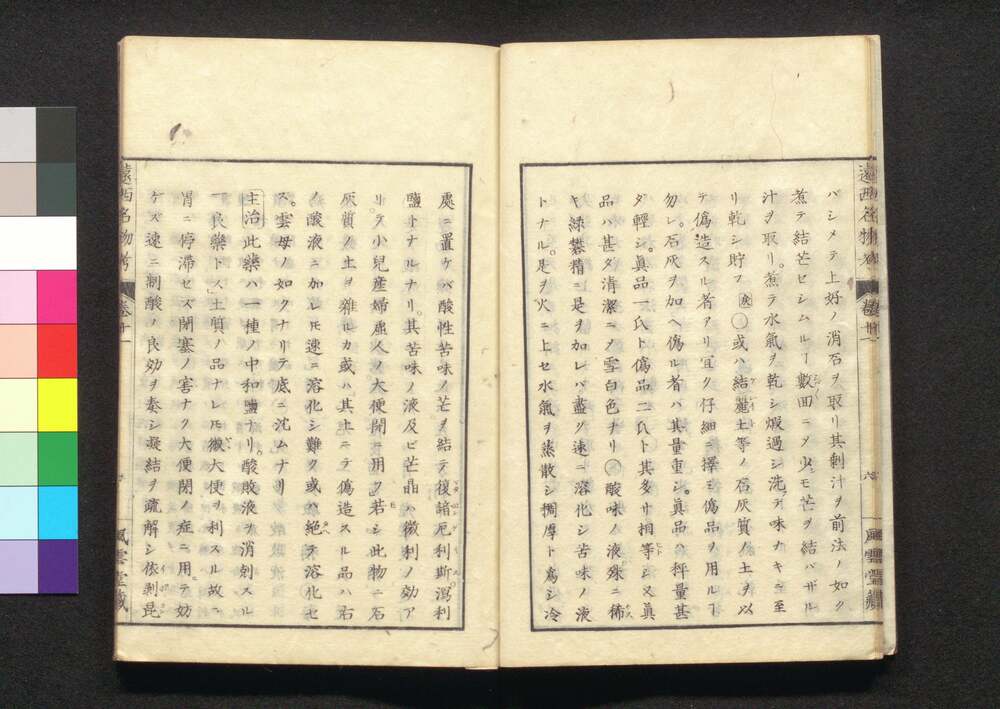 バシメテ上好ノ消石ヲ取リ其剰汁ヲ前法ノ如ク
煮テ結芒ヒシムルヿ數回ニメ少シモ芒ヲ結バザル
汁ヲ取リ。煮テ水氣ヲ乾シ煆過シ洗テ味ナキニ至
リ乾シ貯フ
或ハ結麗土等ノ石灰質ノ土ヲ以
テ偽造スル者アリ宜ク仔細ニ擇ミ偽品ヲ用ル丁
勿レ。石灰ヲ加ヘ偽ル者ハ其量重シ。眞品ハ秤量甚
ダ輕シ。眞品一氏ト偽品二氏ト其多サ相等シ又眞
品ハ甚タ清潔ニメ雪白色ナリ○酸味ノ液殊ニ稀
キ緑礬精ニ是ヲ加レバ盡ク速ニ溶化シ苦味ノ液
トナル。是ヲ火ニ上セ水氣ヲ蒸散シ擱摩ト爲シ冷
遠西名物考
六
風雲堂藏
處ニ置ケバ酸性苦味ノ芒ヲ結テ復諳厄利斯瀉利
鹽トナルナリ。其苦味ノ液及ビ芒晶ハ微利ノ効ア
リテ小兒産婦虚人ノ大便閉ニ用ク若シ此物ニ石
灰質ノ土ヲ雜ルカ或ハ其上ニテ偽造スル品ハ右
ノ酸液ニ加レ𪜈速ニ溶化シ難ク或ハ絶テ溶化セ
ズ。雲母ノ如クナリテ底ニ沈ムナリ
主治此藥ハ一種ノ中和鹽ナリ。酸敗液ヲ消刻スル
良藥トス」土質ノ品ナレ𪜈微大便ヲ利スル故ニ
胃ニ停滯セズ閉塞ノ害ナク大便閉ノ症ニ用テ妨
ゲズ速ニ制酸ノ良効ヲ奏シ凝結ヲ疏解シ依剥昆
遠西名物考
卷廿一
風雲堂藏